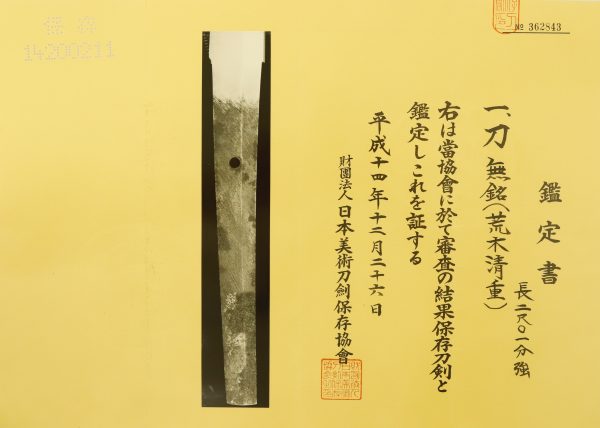 № 362843
鑑定書
一、刀 無銘(荒木清重)
長二尺〇一分強
右は當協會に於て審査の結果保存刀剣と
鑑定しこれを証する
平成十四年十二月二十六日
財團法人 日本美術刀劍保存協會
保存
14200211